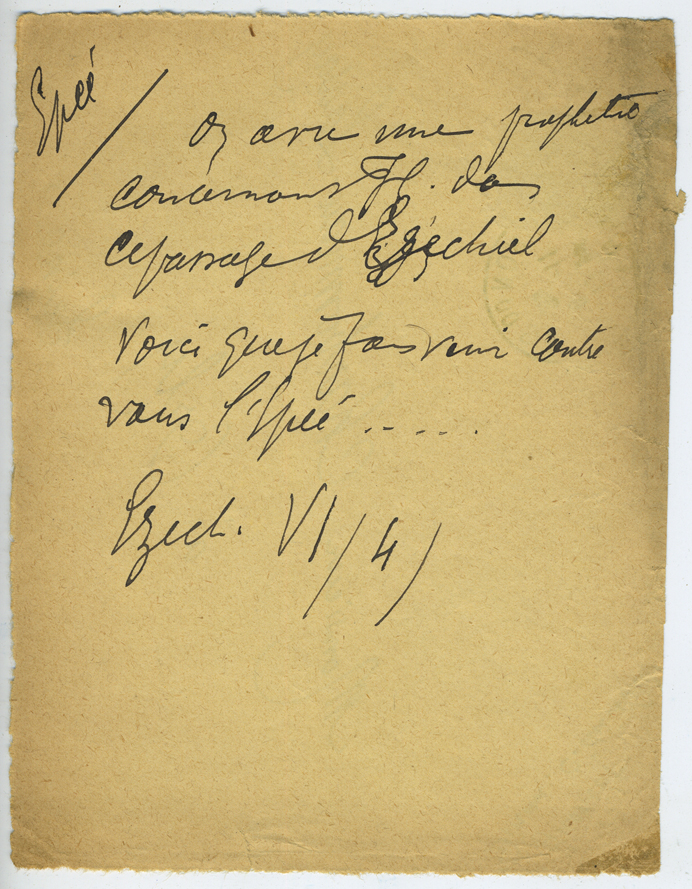 Epée
On a vu une prophetie
concernant JC. dans
ce passage d'Ezechiel
Voici que je fais venir contre
vous l'Epée .. . . .
Ezech. VI/4/